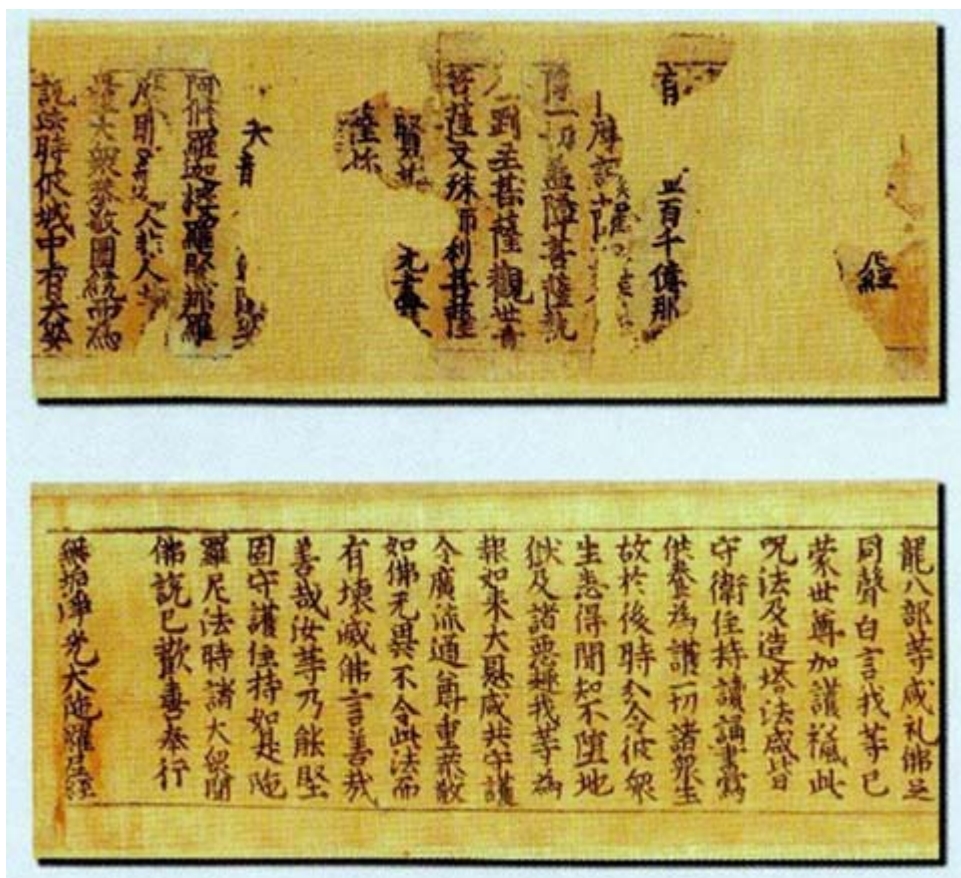 經
有 百千億那
摩訶
除一切蓋障菩薩執
剛主菩薩觀世音
菩薩文殊師利菩薩
賢 无盡
薩弥
阿修羅迦樓羅緊那羅
人非人
量大衆恭敬圍繞而為
說法時彼城中有大婆
龍八部等咸礼佛足
同聲白言我等已
蒙世尊加護授此
呪法及造塔法咸皆
守衛住持讀誦書寫
供養為護一切諸衆生
故於後時分令彼衆
生悉得聞知不墮地
獄及諸惡趣我等為
報如來大恩咸共守護
令廣流通尊重恭敬
如佛无異不令此法而
有壞滅佛言善哉
善哉汝等乃能堅
固守護住持如是陁
羅尼法時諸大衆聞
佛說已歡喜奉行
無垢淨光大陁羅尼經